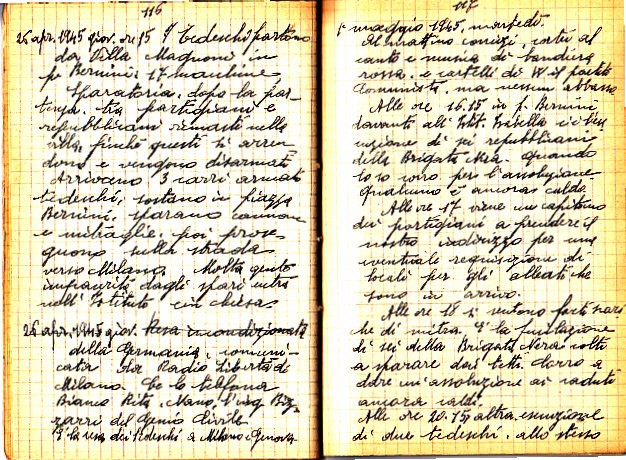 116
26 apr. 1945 giov. ore 15 I Tedeschi partono
da Villa Magnoni in
p. Bernini: 17 macchine
Sparatoria, dopo la par-
tenza, tra partigiani e
repubblicani rimasti nella
villa, finché questi si arren-
dono e vengono disarmati.
Arrivano 3 carri armati
tedeschi, sostano in piazza
Bernini, sparano cannone
e mitraglie, poi prose-
guono sulla strada
verso Milano. Molta gente
impaurita dagli spari entra
nell'Istituto e in chiesa
26 apr. 1945 giov. Resa incondizionata
della Germania, comuni-
cata da Radio Libertà di
Milano. Ce lo telefona
Bianco Rita, Nano, l'ing. Biz-
zarri del Genio Civile
È la resa dei tedeschi a Milano e Genova
117
1° maggio 1945, martedì.
Al mattino comizi, cortei al
canto e musica di bandiera
rossa, e cartelli di W il partito
Comunista, ma nessun abbasso
Alle ore 16.15 in p. Bernini
davanti all'Istit. Isabella c'è l'ese-
cuzione di sei repubblicani
della Brigata Nera. Quando
lo so corro per l'assoluzione
Qualcuno è ancora caldo.
Alle ore 17 viene un capitano
dei partigiani a prendere il
nostro indirizzo per una
eventuale requisizione di
locali per gli alleati che
sono in arrivo.
Alle ore 18 si sentono forti scari-
che di mitra. È la fucilazione
di sei della Brigata Nera colti
a sparare dai tetti. Corro a
dare un'assoluzione ai caduti
ancora caldi.
Alle ore 20.15, altra esecuzione
di due tedeschi, allo stesso